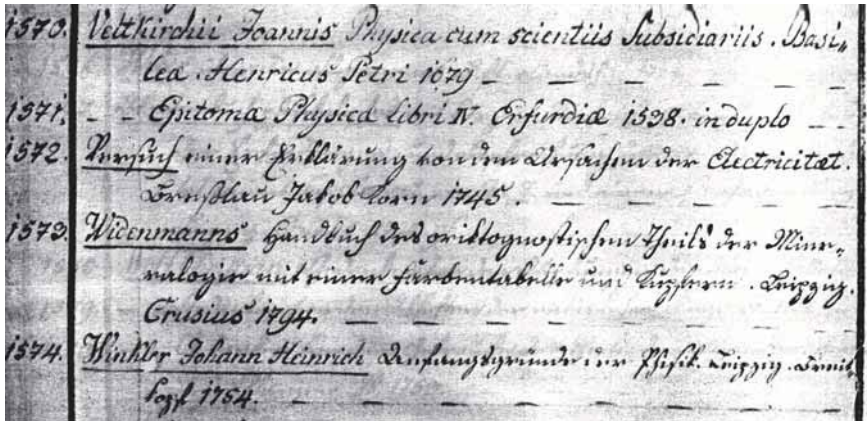 1570. Veltkirchii Joannis Physica cum scientiis Subsidiariis. Basi„
lea. Henricus Petri 1679 _ _ _ _ _
1571. _ _ Epitomæ Physicæ Libri IV. Erfurdiæ 1538. in duplo _ _
1572. Versuch einer Erklärung von den Ursachen der Electricitæt.
Breßlau Jakob Korn 1745. _ _ _ _ _
1573. Widenmanns Handbuch des oriktognostischen Theils der Mine„
ralogie mit einer Farbentabelle und Kupfern. Leipzig.
Crusius 1794. _ _ _ _ _ _
1574. Winkler Johann Heinrich Anfangsgründe der Phisik. Leipzig. Breit„
kopf 1754. _ _ _ _ _ _